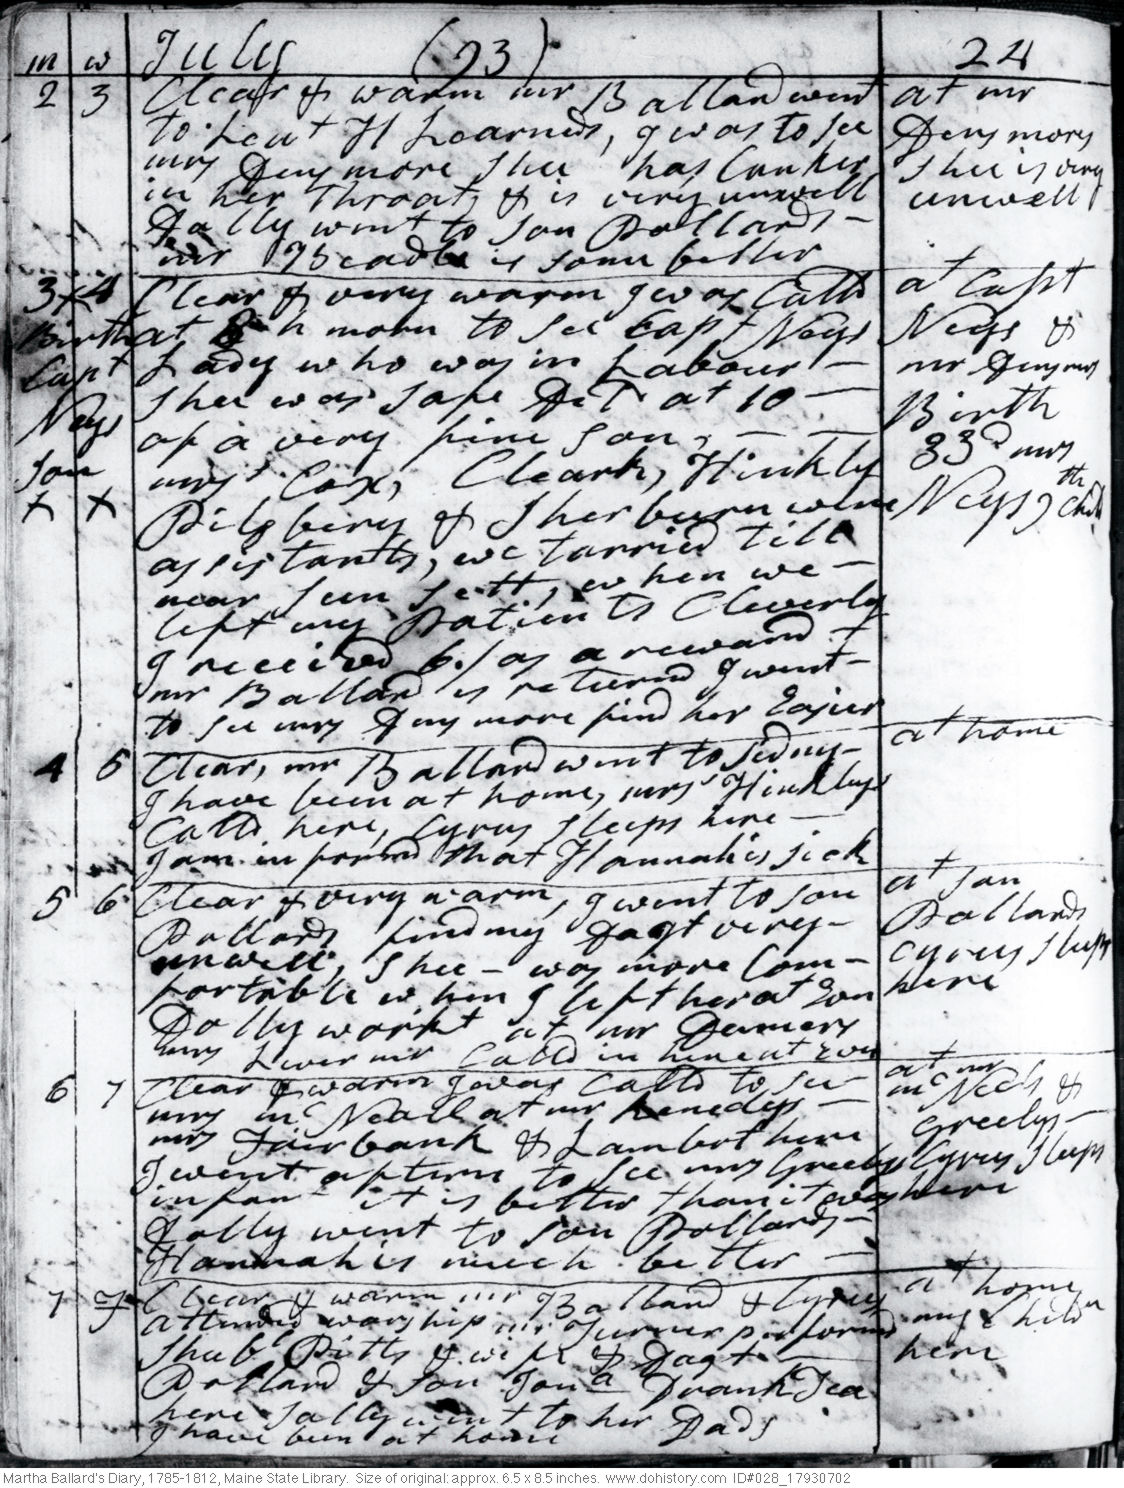 m w July (93) 24
2 3 Clear & warm mr Ballard went
to Leut H Learneds, I was to see
mrs Densmore Shee has Canker
in her throat, & is very unwell
Dolly went to son Pollards -
mr Beadle is some better
at mr
Densmors
shee is very
unwell
3 x 4 Clear & very warm I was Calld
at 6 h morn to see Capt Neys
Lady who was in Labour -
Shee was safe Delt at 10 -
of a very fine Son, - -
mrs Cox, Cleark, Hinkly
Pilsbery & Sherburn were
assistants, we tarried till
near Sun Sett, when we -
left my Patients Cleverly
I received 6/ as a reward
mr Ballard is returnd I went -
to see mrs Densmore find her Easier
Birth
Capt
Neys
Son
x x
at Capt
Neys &
mr Densmors
Birth
33d mrs
Neys 7th Child
4 5 Clear, mr Ballard went to Sidny -
I have been at home, mrs Hinklys
Calld here, Cyrus Sleeps here -
I am informd that Hannah is sick
at home
5 6 Clear & very warm, I went to son
Pollards find my Dagt very -
unwell, Shee - was more Com -
fortable when I left her at Evn
Dolly workt at mr
mrs Livermir Calld in here at Evn
at son
Pollards
Cyrus Sleeps
here
6 7 Clear & warm I was Calld to see -
mrs mc Neall at mr Kenedys -
mrs Fairbank & Lambert here
I went afterne to See mrs Greelys
infant it is better than it was
Dolly went to son Pollards -
Hannah is much better -
at mr
mc Necls &
Greelys -
Cyrus Sleeps
here
7 7 Clear & warm mr Ballard & Cyrus
attended worship mr Turner performd
Shubl Pitts & wife & Dagt -
Pollard & son Jona Drank Tea
here Sally went to her Dads
I have been at home
at home
my Childn
here
Martha Ballard's Diary, 1785-1812, Maine State Library. Size of original: approx. 6.5 x 8.5 inches. www.dohistory.com ID#028_17930702